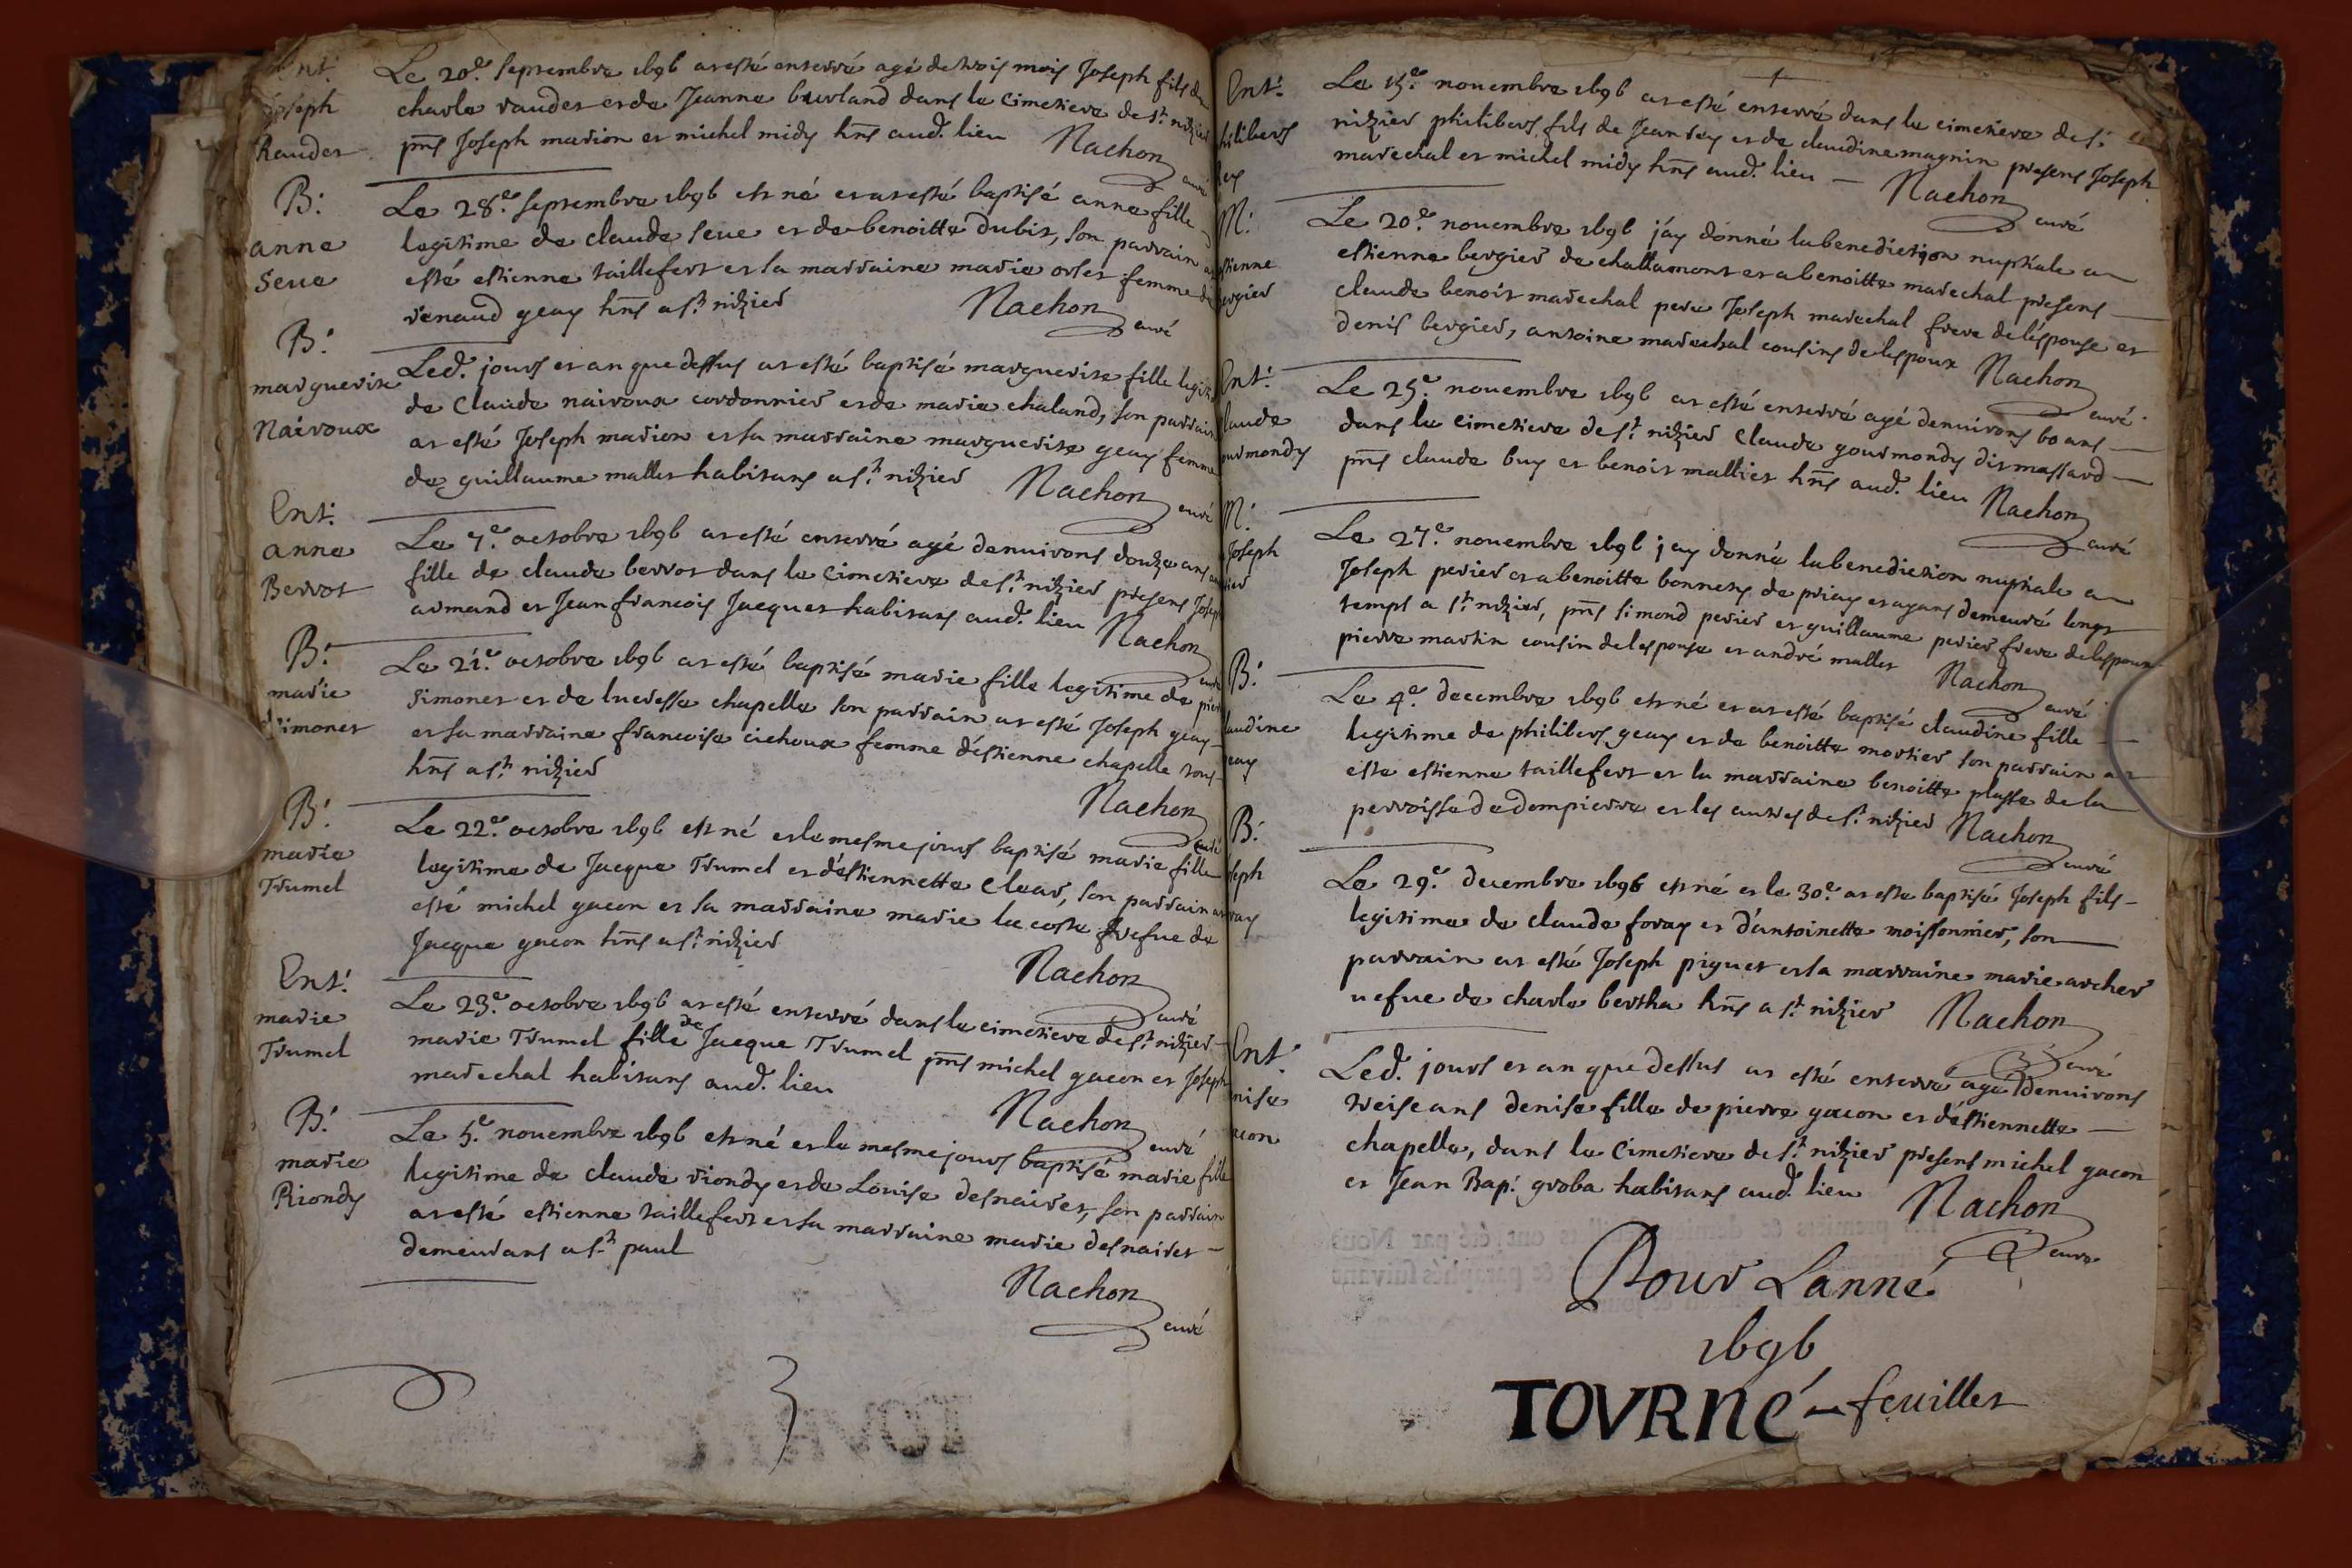 Ent:
Joseph
Rauder
Le 20e. septembre 1696 at esté enterré agé de trois mois Joseph fils de
charle rauder et de Jeanne burland dans le cimetiere de st. nizier
pnts Joseph marion et michel midy hnts aud. lieu Nachon curé
B:
anne
Seve
Le 28e. septembre 1696 est né et at esté baptisé anne fille
legitime de claude seve et de benoitte dubis, son parrain at
esté estienne taillefert et sa marraine marie orset femme de
renaud geay hnts a st. nizier Nachon curé
B:
marguerite
Nairoux
Led. jours et an que dessus at esté baptisé marguerite fille legit
de claude nairoux cordonnier et de marie chaland, son parrain
at esté Joseph marion et sa marraine marguerite geay femme
de guillaume mallet habitans a st. nizier Nachon curé
Ent:
anne
Berrot
Le 7e. octobre 1696 at esté enterré agé denvirons douze ans anne
fille de claude berrot dans le cimetiere de st. nizier presens Joseph
armand et Jean francois Jacquet habitans aud. lieu Nachon curé
B:
marie
Simonet
Le 21e. octobre 1696 at esté baptisé marie fille legitime de pierre
simonet et de lucresse chapelle son parrain at esté Joseph geay
et sa marraine francoise cichoux femme d'estienne chapelle tous
hnts a st. nizier Nachon curé
B:
marie
Trumel
Le 22e. octobre 1696 est né et le mesme jours baptisé marie fille
legitime de Jacque Trumel et d'estiennette clear, son parrain at
esté michel gacon et sa marraine marie la coste vefue de
Jacque gacon hnts a st. nizier Nachon curé
Ent:
marie
Trumel
Le 23e. octobre 1696 at esté enterré dans le cimetiere de st. nizier
marie Trumel fille de Jacque Trumel pnts michel gacon et Joseph
marechal habitans aud. lieu Nachon curé
B:
marie
Riondy
Le 5e. novembre 1696 est né et le mesme jours baptisé marie fille
legitime de claude riondy et de Louise desnaires, son parrain
at esté estienne taillefert et sa marraine marie desnaires
demeurans a st. paul
Nachon curé
Ent:
hilibert
Rey
Le 15e. novembre 1696 at esté enterré dans le cimetiere de st.
nizier philibert fils de Jean rey et de claudine magnin presens Joseph
marechal et michel midy hnts aud. lieu Nachon curé
M:
estienne
bergier
Le 20e. novembre 1696 j'ay donné la benediction nuptiale a
estienne bergier de challamont et a benoitte marechal presens
claude benoit marechal pere Joseph marechal frere de l'espouse et
denis bergier, antoine marechal cousins de lespoux Nachon curé
Ent:
laude
ourmondy
Le 25e. novembre 1696 at esté enterré agé denvirons 60 ans
dans le cimetiere de st. nizier claude gourmondy dit massard
pnts claude buy et benoit mallier hnts aud. lieu Nachon curé
M:
Joseph
rier
Le 27e. novembre 1696 j'ay donné la benediction nuptiale a
Joseph perier et a benoitte bonnets de priay et ayans demeuré longt
temps a st. nizier, pnts simond perier et guillaume perier frere de lespoux
pierre martin cousin de lespouse et andré mallet Nachon curé
B:
laudine
geay
Le 4e. decembre 1696 est né et at esté baptisé claudine fille
legitime de philibert geay et de benoitte mortier son parrain at
esté estienne taillefert et la marraine benoitte plasse de la
perroisse de dompierre et les autres de st. nizier Nachon curé
B:
oseph
oray
Le 29e. decembre 1696 est né et le 30e. at esté baptisé Joseph fils
legitime de claude foray et d'antoinette moissonnier, son
parrain at esté Joseph piguet et sa marraine marie archer
uefue de charle bertha hnts a st. nizier Nachon curé
Ent:
enise
acon
Led. jours et an que dessus at esté enterré agé denvirons
treise ans denise fille de pierre gacon et d'estiennette
chapelle, dans le cimetiere de st. nizier presens michel gacon
et Jean Bap: groba habitans aud. lieu Nachon curé
Pour Lanné
1696
TOVRNÉ feuillet